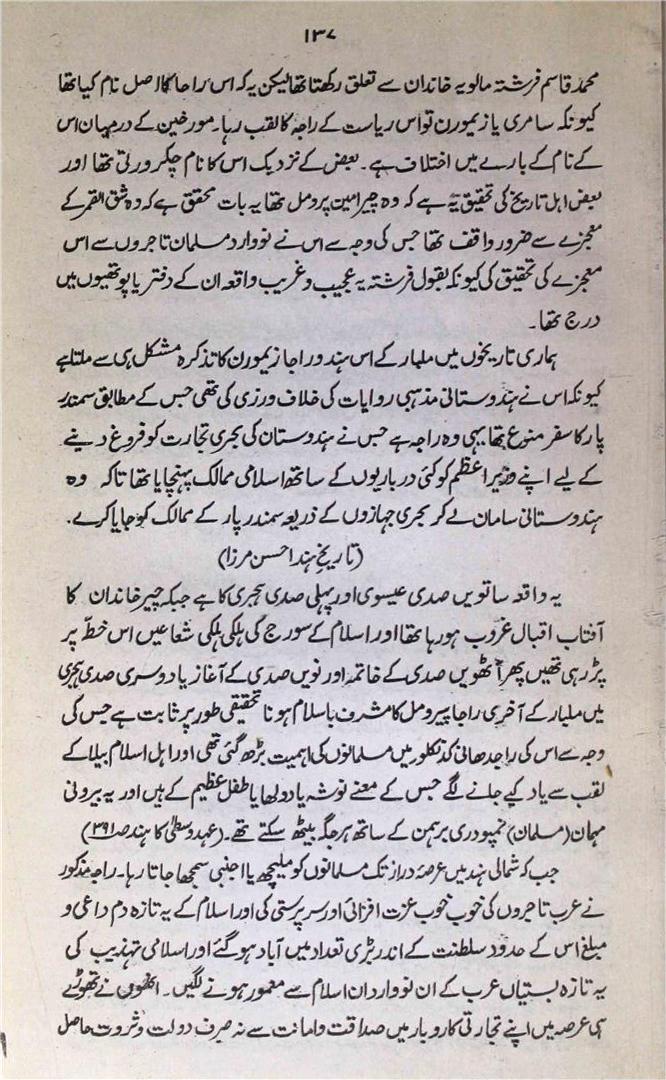 ۱۳۷
محمد قاسم فرشتہ مالویہ خاندان سے تعلق رکھتا تھا لیکن یہ کہ اس راجا کا اصل نام کیا تھا
کیونکہ سامری یا زیمورن تو اس ریاست کے راجہ کا لقب رہا۔ مورخین کے درمیان اس
کے نام کے بارے میں اختلاف ہے۔ بعض کے نزدیک اس کا نام چکرورتی تھا اور
بعض اہل تاریخ کی تحقیق یہ ہے کہ وہ چیرامین پرومل تھا یہ بات محقق ہے کہ وہ شق القمر کے
معجزے سے ضرور واقف تھا جس کی وجہ سے اس نے نووارد مسلمان تاجروں سے اس
معجزے کی تحقیق کی کیونکہ بقول فرشتہ یہ عجیب و غریب واقعہ ان کے دفتر یا پوتھیوں میں
درج تھا۔
ہماری تاریخوں میں ملبار کے اس ہندو راجا زیمورن کا تذکرہ مشکل ہی سے ملتا ہے
کیونکہ اس نے ہندوستانی مذہبی روایات کی خلاف ورزی کی تھی جس کے مطابق سمندر
پار کا سفر ممنوع تھا یہی وہ راجہ ہے جس نے ہندوستان کی بحری تجارت کو فروغ دینے
کے لیے اپنے وزیر اعظم کو کئی درباریوں کے ساتھ اسلامی ممالک پہنچایا تھا تاکہ وہ
ہندوستانی سامان لے کر بحری جہازوں کے ذریعہ سمندر پار کے ممالک کو جایا کرے۔
(تاریخ ہند احسن مرزا)
یہ واقعہ ساتویں صدی عیسوی اور پہلی صدی ہجری کا ہے جبکہ چیر خاندان کا
آفتاب اقبال غروب ہو رہا تھا اور اسلام کے سورج کی ہلکی ہلکی شعاعیں اس خطّ پر
پڑ رہی تھیں پھر آٹھویں صدی کے خاتمہ اور نویں صدی کے آغاز یا دوسری صدی ہجری
میں ملبار کے آخری راجا پیرومل کا مشرف باسلام ہونا تحقیقی طور پر ثابت ہے جس کی
وجہ سے اس کی راجدھانی کدنکلور میں مسلمانوں کی اہمیت بڑھ گئی تھی اور اہل اسلام بیلا کے
لقب سے یاد کیے جانے لگے جس کے معنے نوشہ یا دولھا یا طفل عظیم کے ہیں اور یہ بیرونی
مہمان (مسلمان) نمپودری برہمن کے ساتھ ہر جگہ بیٹھ سکتے تھے۔ (عہد وسطیٰ کا ہند صہ ۳۹۱)
جب کہ شمالی ہند میں عرصۂ دراز تک مسلمانوں کو ملیچھ یا اجنبی سمجھا جاتا رہا۔ راجہ مذکور
نے عرب تاجروں کی خوب خوب عزت افزائی اور سرپرستی کی اور اسلام کے یہ تازہ دم داعی و
مبلغ اس کے حدود سلطنت کے اندر بڑی تعداد میں آباد ہو گئے اور اسلامی تہذیب کی
یہ تازہ بستیاں عرب کے ان نوواردان اسلام سے معمور ہونے لگیں۔ انھوں نے تھوڑے
ہی عرصہ میں اپنے تجارتی کاروبار میں صداقت و امانت سے نہ صرف دولت و ثروت حاصل